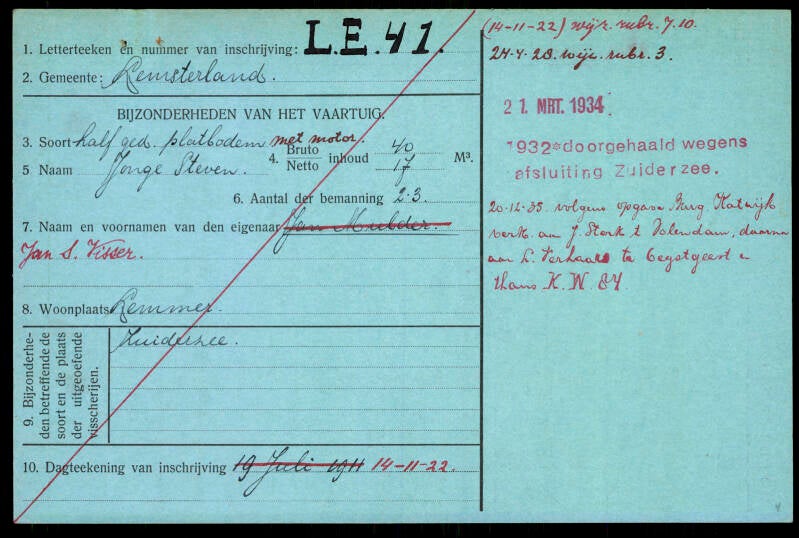 1. Letterteeken en nummer van inschrijving: L.E. 41.
2. Gemeente: Lemsterland.
BIJZONDERHEDEN VAN HET VAARTUIG.
3. Soort half ged. platbodem met motor.
4. Bruto Netto inhoud 40 17 M³.
5 Naam Jonge Steven.
6. Aantal der bemanning 2-3.
7. Naam en voornamen van den eigenaar Jan Mulder.
Jan S. Visser.
8. Woonplaats Lemmer.
9. Bijzonderhe-
den betreffende de
soort en de plaats
der uitgeoefende
visscherijen.
Zuiderzee.
10. Dagteekening van inschrijving 19 Juli 1911 14-11-22.
(14-11-22) wijz. rubr. 7.10.
24-4-28. wijz. rubr. 3.
21. MRT. 1934
1932 doorgehaald wegens
afsluiting Zuiderzee.
20-12-35. volgens opgave Burg. Katwijk
verk. aan J. Sterk t Volendam, daarna
aan L. Verhaar te Oegstgeest
thans K.W. 84.